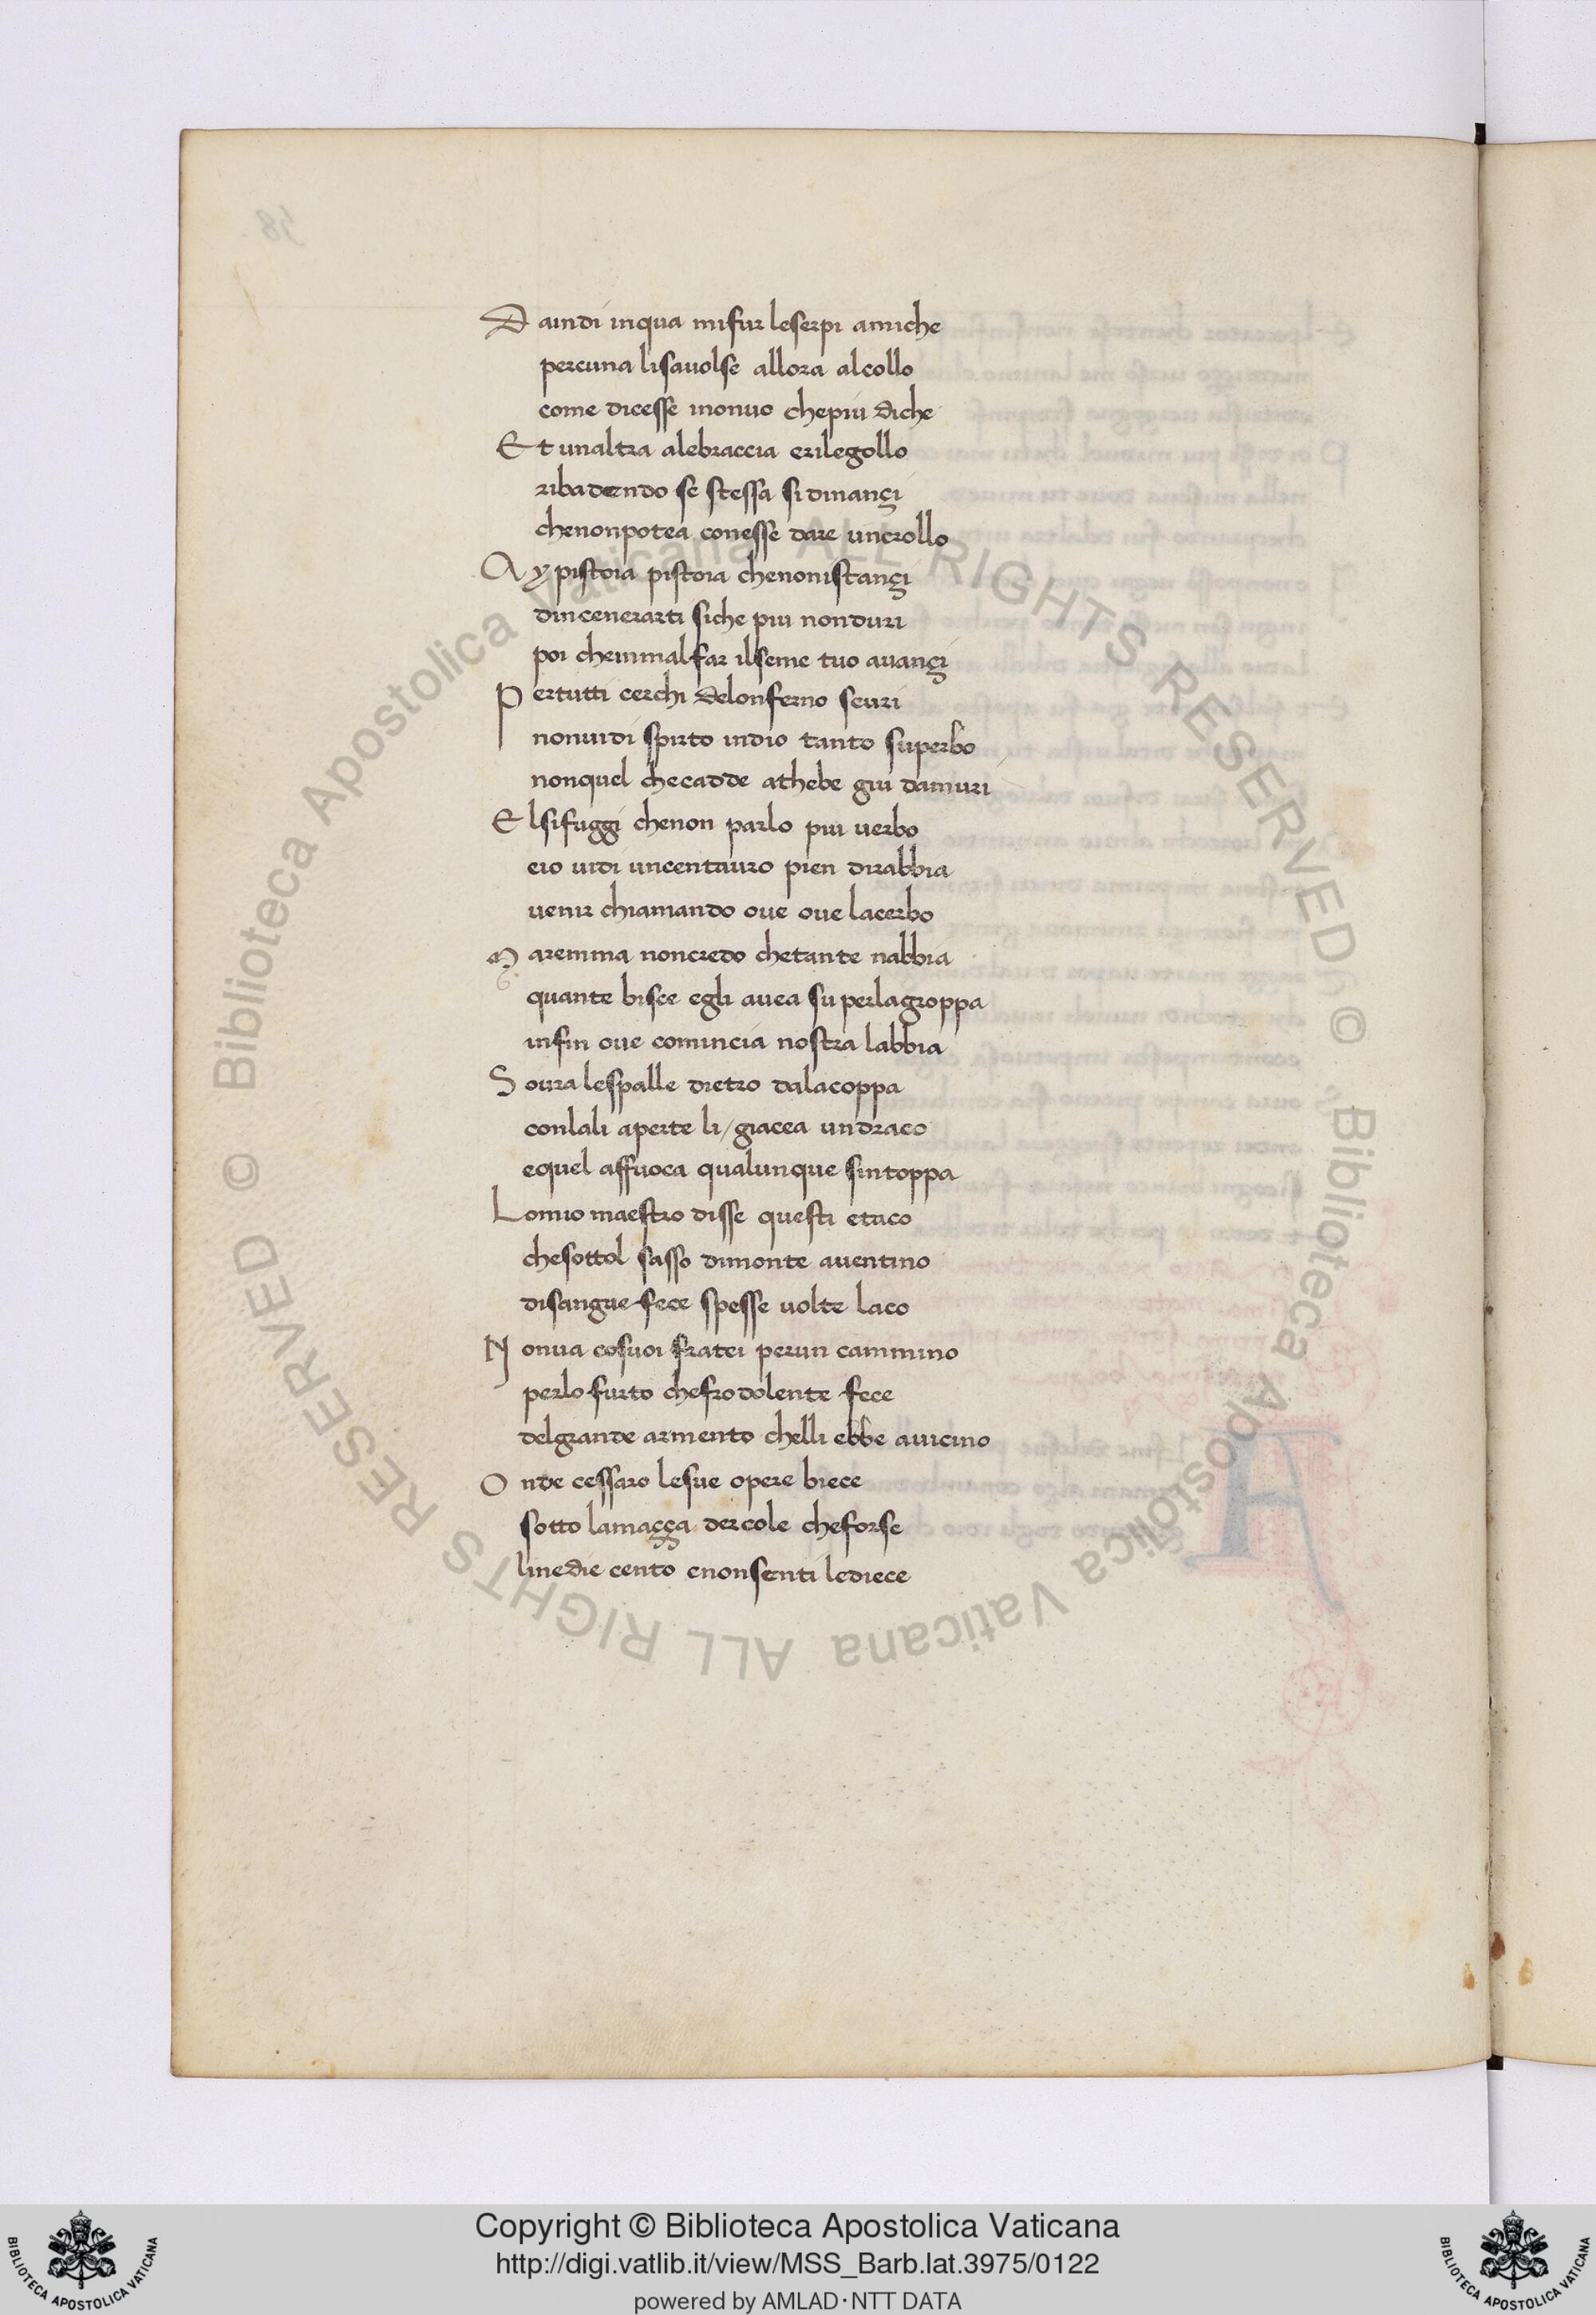 Daindi inqua mifur leserpi amiche
percuna lisavolse allora alcollo
come dicesse inonuo chepiu diche
Et unaltra alebraccia erilegollo
ribadendo se stessa si dinançi
chenonpotea conesse dare uncrollo
Ay pistoia pistoia chenonistançi
dincenerarti siche piu nonduri
poi cheinmalfar ilseme tuo auançi
Pertutti cerchi delonferno scuri
nonuidi spirto indio tanto superbo
nonquel checadde athebe giu damuri
Elsifuggi chenon parlo piu uerbo
eio uidi uncentauro pien dirabbia
uenir chiamando oue oue lacerbo
Maremma noncredo chetante nabbia
quante bisce egli auea su perlagroppa
infin oue comincia nostra labbia
Soura lespalle dietro dalacoppa
conlali aperte li/giacea undraco
equel affuoca qualunque sintoppa
Lomio maestro disse questi etaco
chesottol sasso dimonte auentino
disangue fece spesse uolte laco
Nonua cosuoi fratei perun cammino
perlo furto chefrodolente fece
delgrande armento chelli ebbe auicino
Onde cessaro lesue opere biece
sotto lamaçça dercole cheforse
linedie cento enonsenti lediece
Copyright © Biblioteca Apostolica Vaticana
http://digi.vatlib.it/view/MSS_Barb.lat.3975/0122
powered by AMLAD·NTT DATA